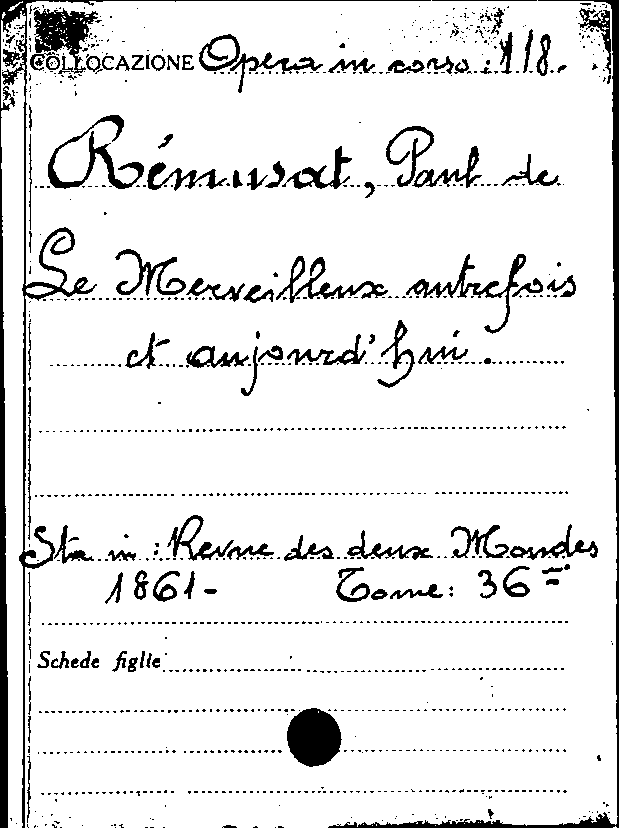 COLLOCAZIONE Opera in corso: 118.
Rémusat, Paul de
Le Merveilleux autrefois
et aujourd'hui.
Sta in: Revue des deux Mondes
1861- Tome: 36=
Schede figlie